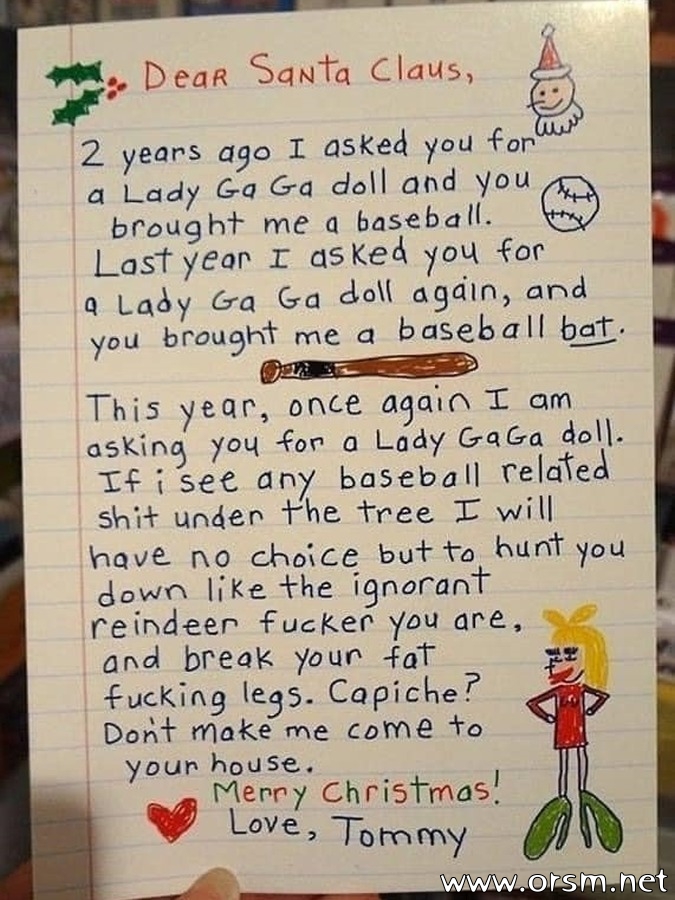 Dear Santa Claus,
2 years ago I asked you for
a Lady Ga Ga doll and you
brought me a baseball.
Last year I asked you for
a Lady Ga Ga doll again, and
you brought me a baseball bat.
This year, once again I am
asking you for a Lady GaGa doll.
If i see any baseball related
shit under the tree I will
have no choice but to hunt you
down like the ignorant
reindeer fucker you are,
and break your fat
fucking legs. Capiche?
Don't make me come to
your house.
Merry Christmas!
Love, Tommy
www.orsm.net